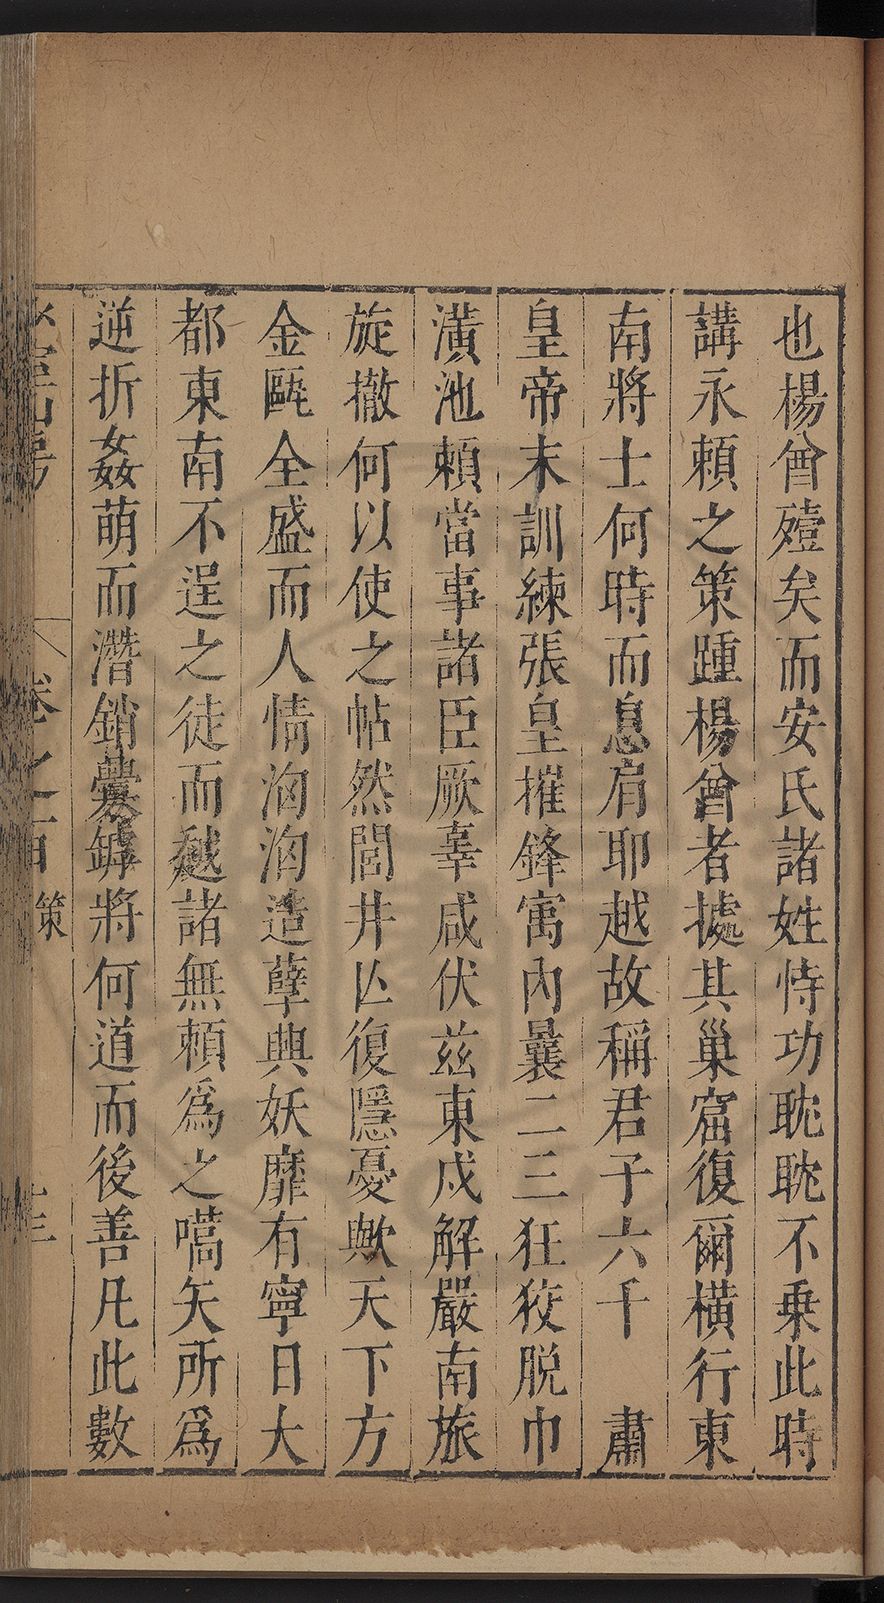 也楊酋殪矣而安氏諸姓恃功耽耽不乗此時
講永頼之策踵楊酋者㨿其巢窟復爾橫行東
南將士何時而息肩耶越故稱君子六千　肅
皇帝末訓練張皇摧鋒寓內曩二三狂狡脫巾
潢池頼當事諸臣厥辜咸伏兹東戍解嚴南旅
旋撤何以使之帖然閭井亾復隱憂歟天下方
金甌全盛而人情洶洶造孽興妖靡有寧日大
都東南不逞之徒而越諸無頼爲之嚆矢所爲
逆折姦萌而潛銷釁罅將何道而後善凡此數
卷之首
策